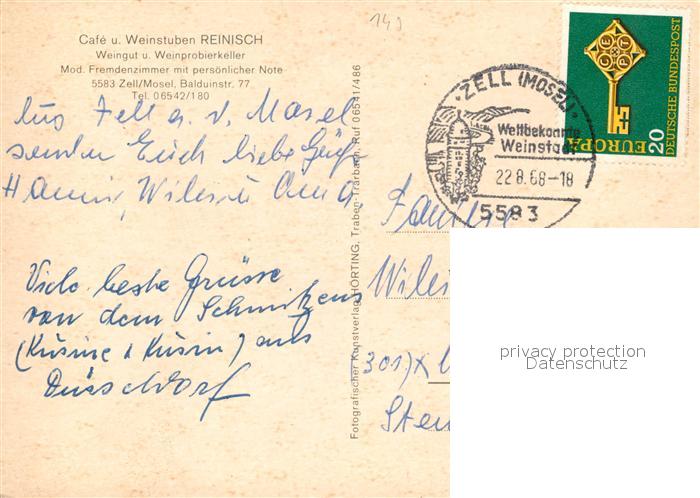 149
Café u. Weinstuben REINISCH
Weingut u. Weinprobierkeller
Mod. Fremdenzimmer mit persönlicher Note
5583 Zell/Mosel, Balduinstr. 77
Tel. 06542/180
aus Zell a. d. Mosel
senden Euch liebe Grüße
Hanni, Wili u. Oma.
Viele beste Grüsse
von dem Schmitzens
(Kusine & Kusin) aus
Düsseldorf
Fotografischer Kunstverlag HÖRTING, Traben-Trarbach, Ruf 06541/486
ZELL (MOSEL)
Weltbekannte
Weinstadt
22.8.68-18
5583
CEPT
EUROPA
20
DEUTSCHE BUNDESPOST
Familie
(301)
privacy protection
Datenschutz